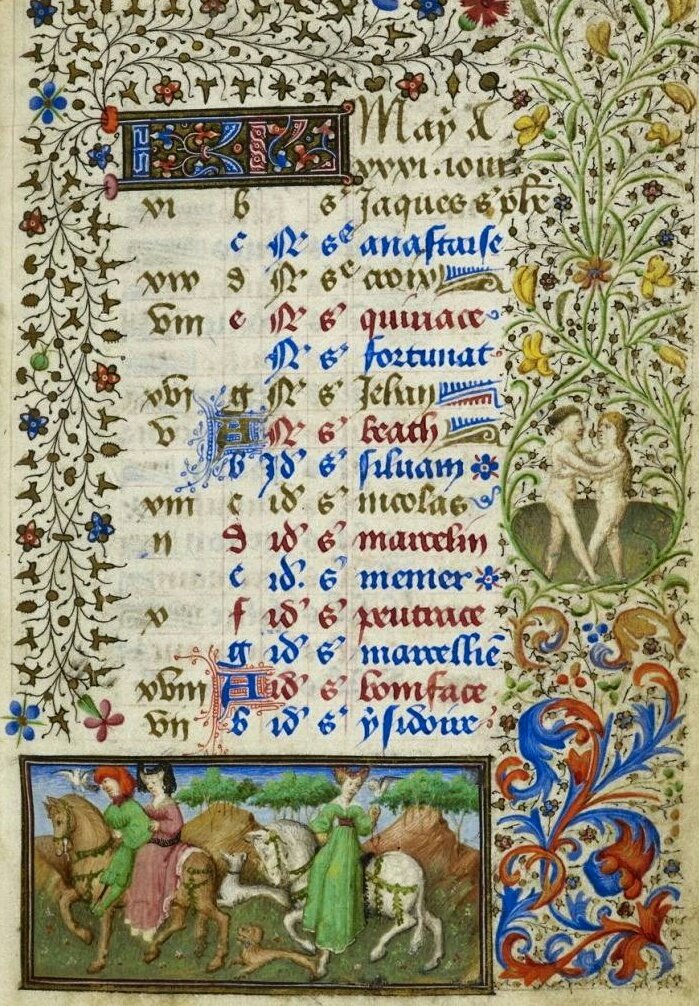 KL May a
xxxi. iours
xi b s' Jaques s' phe
c N sᵉ anastaise
xix d N sᵉ croix
viii e N s' quiriace
N s' fortunat
xvi g N s' Jehan
v A N s' beath
b Id s' siluain
xiii c id s' nicolas
ii d id s' marcelin
e id. s' memer
x f id s' peutrace
g id s' marcellie
xviii A id s' boniface
vii b id s' ysidoire